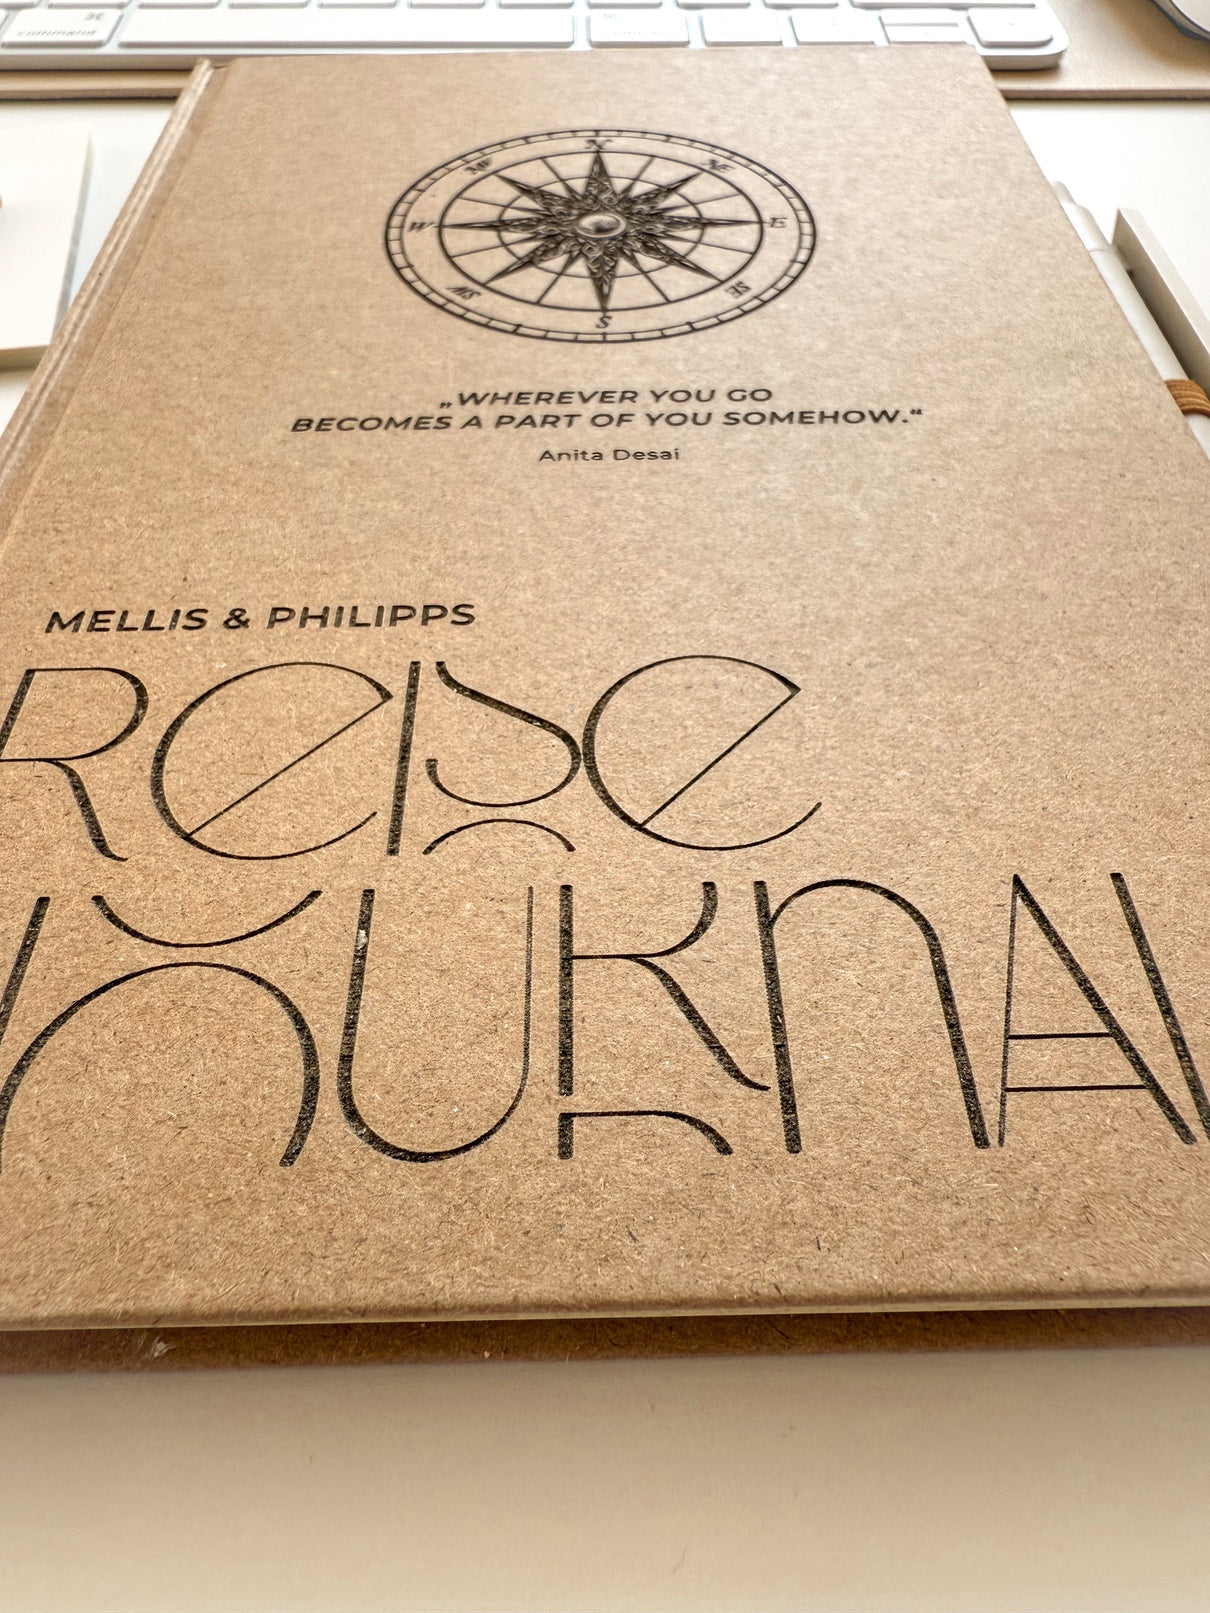 command
N
NW
NE
W
E
SW
SE
S
„WHEREVER YOU GO
BECOMES A PART OF YOU SOMEHOW.“
Anita Desai
MELLIS & PHILIPPS
REISE
JOURNAL